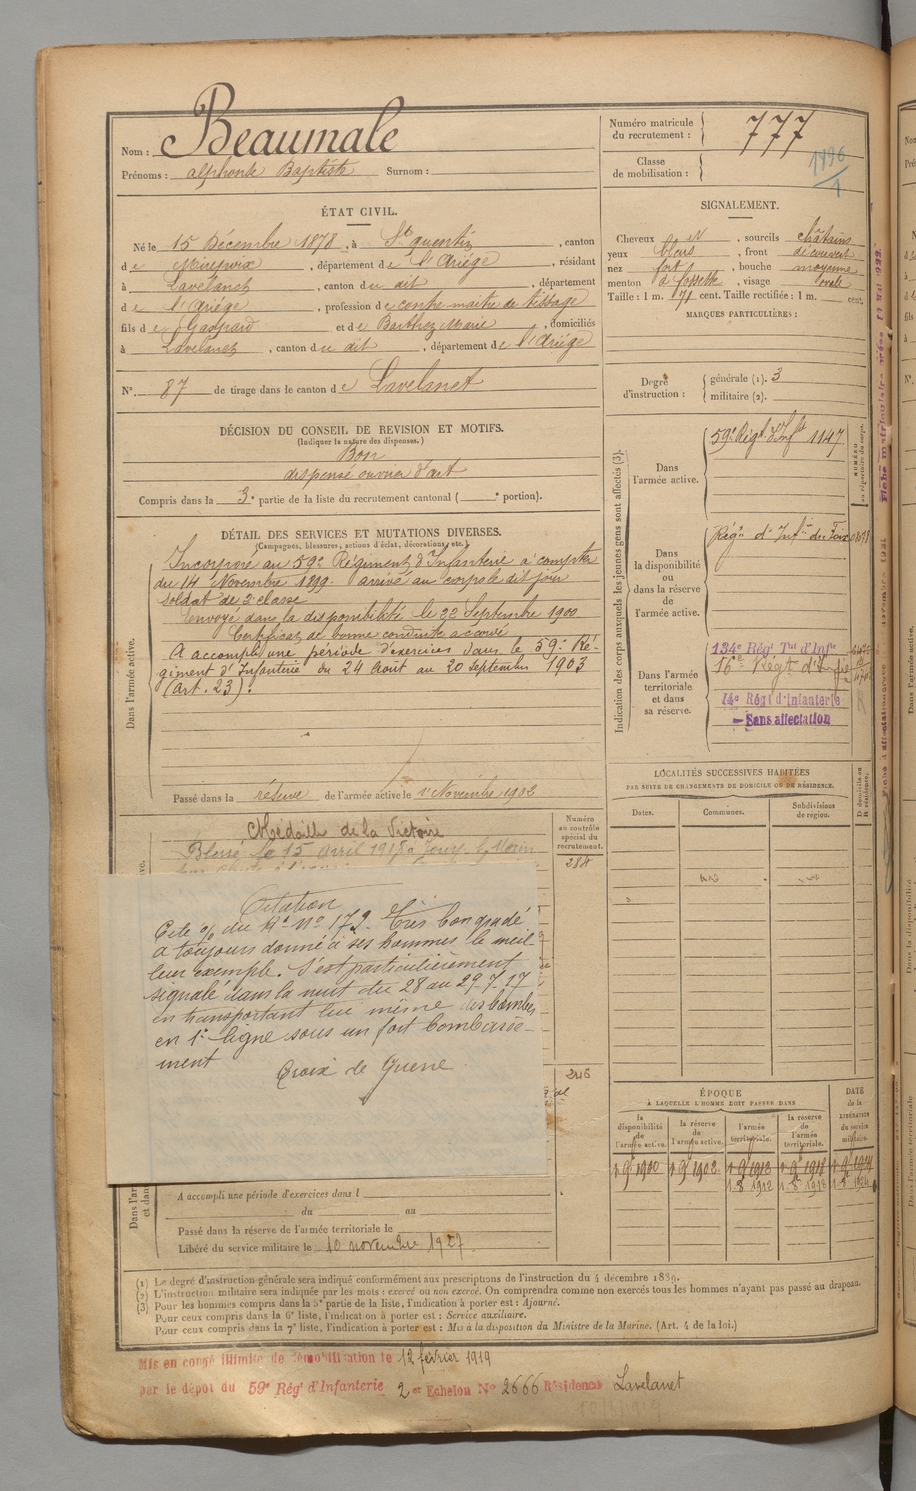 Nom : Beaumale
Prénoms : alphonse Baptiste Surnom :
Numéro matricule du recrutement : 777
Classe de mobilisation : 1896/1
ÉTAT CIVIL.
Né le 15 Décembre 1878, à St quentin, canton
de Mirepoix, département de l'Ariége, résidant
à Lavelanet, canton du dit, département
de l'Ariége, profession de contre maitre de tissage
fils de Gaspard et de Barthez Marie, domiciliés
à Lavelanet, canton du dit, département de l'Ariége
N°. 87 de tirage dans le canton de Lavelanet
SIGNALEMENT.
Cheveux N, sourcils châtains
yeux bleus, front découvert
nez fort, bouche moyenne
menton à fossette, visage ovale
Taille : 1 m. 171 cent. Taille rectifiée : 1 m. cent.
MARQUES PARTICULIÈRES :
Degré d'instruction : générale (1). 3
militaire (2).
DÉCISION DU CONSEIL DE REVISION ET MOTIFS.
(Indiquer la nature des dispenses.)
Bon
dispensé ouvrier d'art
Compris dans la 3e partie de la liste du recrutement cantonal ( e portion).
DÉTAIL DES SERVICES ET MUTATIONS DIVERSES.
(Campagnes, blessures, actions d'éclat, décorations, etc.)
Dans l'armée active.
Incorporé au 59e Régiment d'Infanterie à compter
du 14 Novembre 1899. arrivé au corps le dit jour
soldat de 2e classe
Envoyé dans la disponibilité le 22 Septembre 1900
Certificat de bonne conduite accordé
A accompli une période d'exercices dans le 59e Ré-
giment d'Infanterie du 24 Août au 20 septembre 1903
(art. 23).
Passé dans la réserve de l'armée active le 1er Novembre 1902
Indication des corps auxquels les jeunes gens sont affectés (3).
NUMÉRO au répertoire du corps.
Dans l'armée active. 59e Régt d'Inft 1147
Dans la disponibilité ou dans la réserve de l'armée active. Régt d'Inf.ie de Foix
Dans l'armée territoriale et dans sa réserve.
134e Régt Tal d'Infie
16e Régt d'Infie
14e Régt d'Infanterie
Sans affectation
LOCALITÉS SUCCESSIVES HABITÉES
PAR SUITE DE CHANGEMENTS DE DOMICILE OU DE RÉSIDENCE.
Dates. Communes. Subdivisions de région. D. domicile ou R. résidence.
Médaille de la Victoire
Blessé le 15 avril 1918 à
Numéro au contrôle spécial du recrutement.
284
246
Citation
à toujours donné à ses hommes le meil-
leur exemple. S'est particulièrement
signalé dans la nuit du 28 au 29.7.17
en transportant lui même des bombes
en 1e ligne sous un fort bombarde-
ment
Croix de Guerre
ÉPOQUE
A LAQUELLE L'HOMME DOIT PASSER DANS
la disponibilité de l'armée active. la réserve de l'armée active. l'armée territoriale. la réserve de l'armée territoriale. DATE de la LIBÉRATION du service militaire.
1. 9 1900 1. 9 1902 1. 9 1912 1. 9 1918 1. 9 1924
1. 8 1912 1. 8 1918 1. 8 1924
A accompli une période d'exercices dans l
du au
Passé dans la réserve de l'armée territoriale le
Libéré du service militaire le 10 novembre 1927.
(1) Le degré d'instruction générale sera indiqué conformément aux prescriptions de l'instruction du 4 décembre 1889.
(2) L'instruction militaire sera indiquée par les mots : exercé ou non exercé. On comprendra comme non exercés tous les hommes n'ayant pas passé au drapeau.
(3) Pour les hommes compris dans la 5e partie de la liste, l'indication à porter est : Ajourné.
Pour ceux compris dans la 6e liste, l'indication à porter est : Service auxiliaire.
Pour ceux compris dans la 7e liste, l'indication à porter est : Mis à la disposition du Ministre de la Marine. (Art. 4 de la loi.)
Mis en congé illimité de démobilisation le 12 février 1919
par le dépôt du 59e Régt d'Infanterie 2e Echelon N° 2666 Résidence Lavelanet